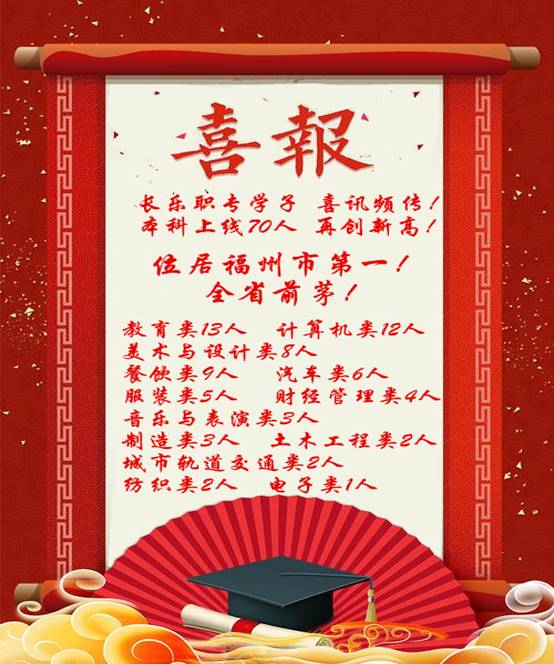 喜報
长乐职专学子 喜讯频传!
本科上线70人 再创新高!
位居福州市第一!
全省前茅!
教育类13人 计算机类12人
美术与设计类8人
餐饮类9人 汽车类6人
服装类5人 财经管理类4人
音乐与表演类3人
制造类3人 土木工程类2人
城市轨道交通类2人
纺织类2人 电子类1人